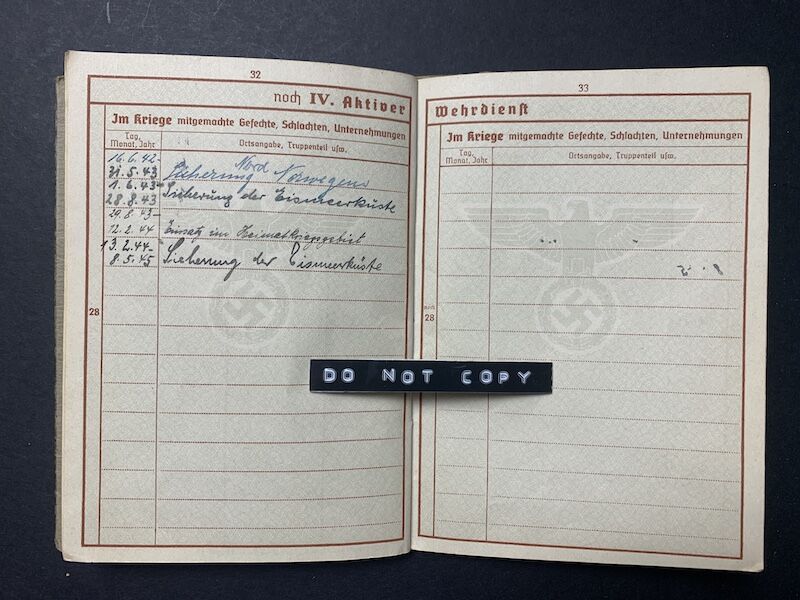 32
noch IV. Aktiver
Im Kriege mitgemachte Gefechte, Schlachten, Unternehmungen
Tag, Monat, Jahr
Ortsangabe, Truppenteil usw.
16.6.42-
31.5.43 Sicherung Nord Norwegens
1.6.43-
28.8.43 Sicherung der Eismeerküste
29.8.43-
12.2.44 Einsatz im Heimatkriegsgebiet
13.2.44-
8.5.45 Sicherung der Eismeerküste
28
33
Wehrdienst
Im Kriege mitgemachte Gefechte, Schlachten, Unternehmungen
Tag, Monat, Jahr
Ortsangabe, Truppenteil usw.
noch
28
DO NOT COPY